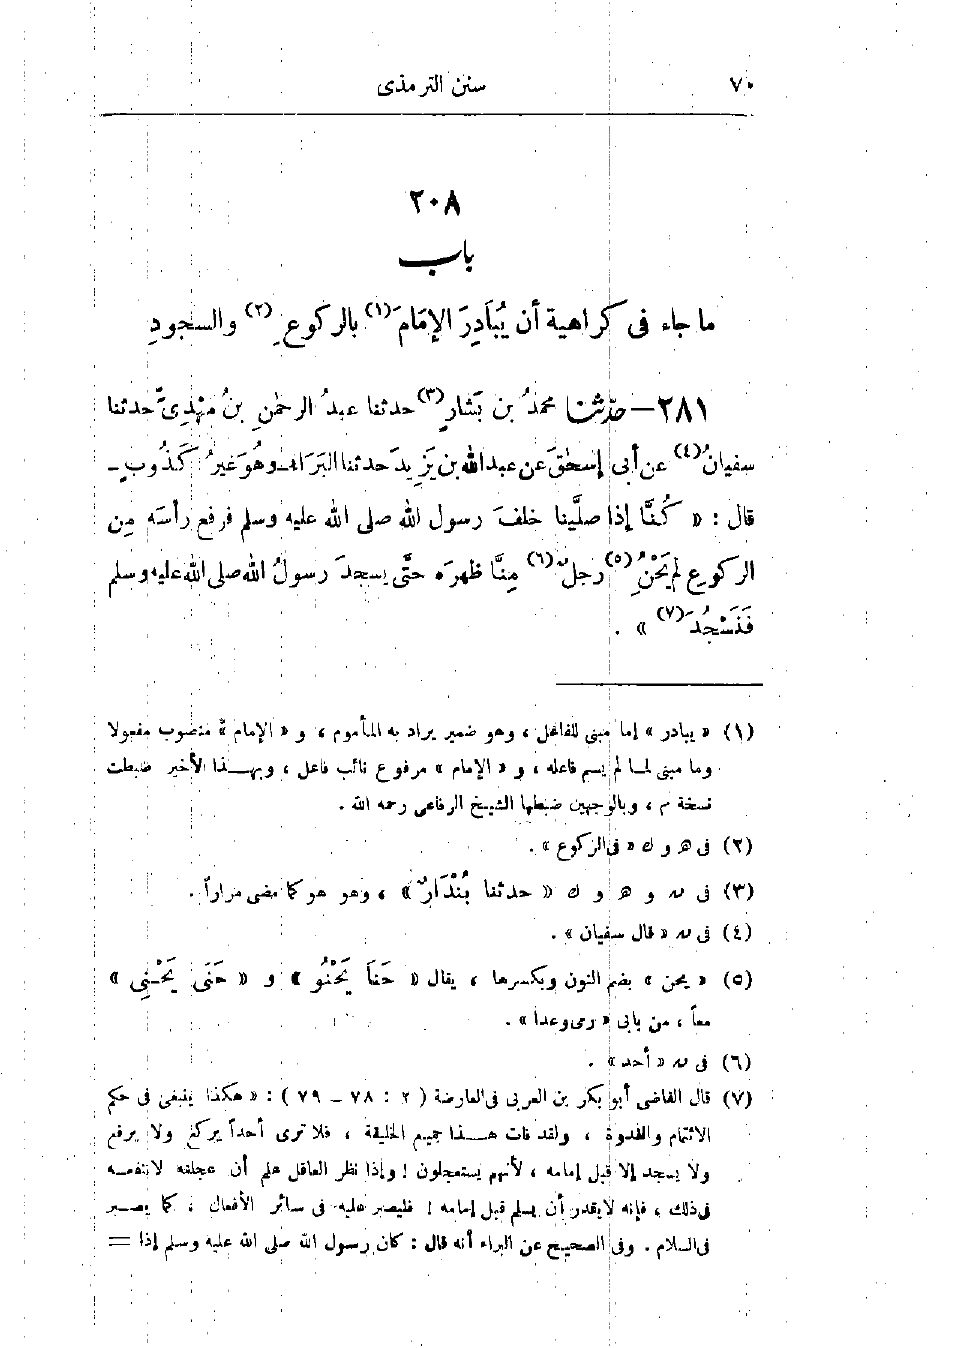 ٧٠ سنن الترمذى
٢٠٨
باب
ما جاء فى كراهية أن يُبَادِرَ الإمَامَ (١) بالركوعِ (٢) والسجودِ
٢٨١ – حدّثنا محمدُ بن بَشارٍ (٣) حدثنا عبدُ الرحمٰنِ بنُ مَهْدِىٍّ حدثنا
سفيانُ (٤) عن أبى إسحٰقَ عن عبد الله بن يَزِيدَ حدثنا البَرَاءُ - وهُو غيرُ كَذُوبٍ -
قال : « كُنَّا إذا صلَّينا خلفَ رسول الله صلى الله عليه وسلم فرفع رأسَه مِن
الركوعِ لم يَحْنُِ (٥) رجلٌ (٦) مِنَّا ظهرَه حتَّى يسجدَ رسولُ الله صلى الله عليه وسلم
فَنَسْجُدَُ (٧) » .
(١) « يبادر » إما مبنى للفاعل ، وهو ضمير يراد به المأموم ، و « الإمام » منصوب مفعولا
وما مبنى لما لم يسم فاعله ، و « الإمام » مرفوع نائب فاعل ، وبهذا الأخير ضبطت
نسخة م ، وبالوجهين ضبطها الشيخ الرفاعى رحمه الله .
(٢) فى ه و ك « فى الركوع » .
(٣) فى ه و ك « حدثنا بُنْدَارٌ » ، وهو هو كما مضى مراراً .
(٤) فى « قال سفيان » .
(٥) « يحن » بضم النون وبكسرها ، يقال « حَنَا يَحْنُو » و « حَنَى يَحْنِى »
معاً ، من بابى « رمى وعدا » .
(٦) فى « أحد » .
(٧) قال القاضى أبو بكر بن العربى فى العارضة ( ٢ : ٧٨ – ٧٩ ) : « هكذا ينبغى فى حكم
الائتمام والقدوة ، ولقد فات هذا جميع الخليقة ، فلا ترى أحداً يركع ولا يرفع
ولا يسجد إلا قبل إمامه ، لأنهم يستعجلون ! وإذا نظر العاقل علم أن عجلته لا تنفعه
فى ذلك ، فإنه لا يقدر أن يسلم قبل إمامه ! فليصبر عليه فى سائر الأفعال ، كما يصبر
فى السلام . وفى الصحيح عن البراء أنه قال : كان رسول الله صلى الله عليه وسلم إذا =